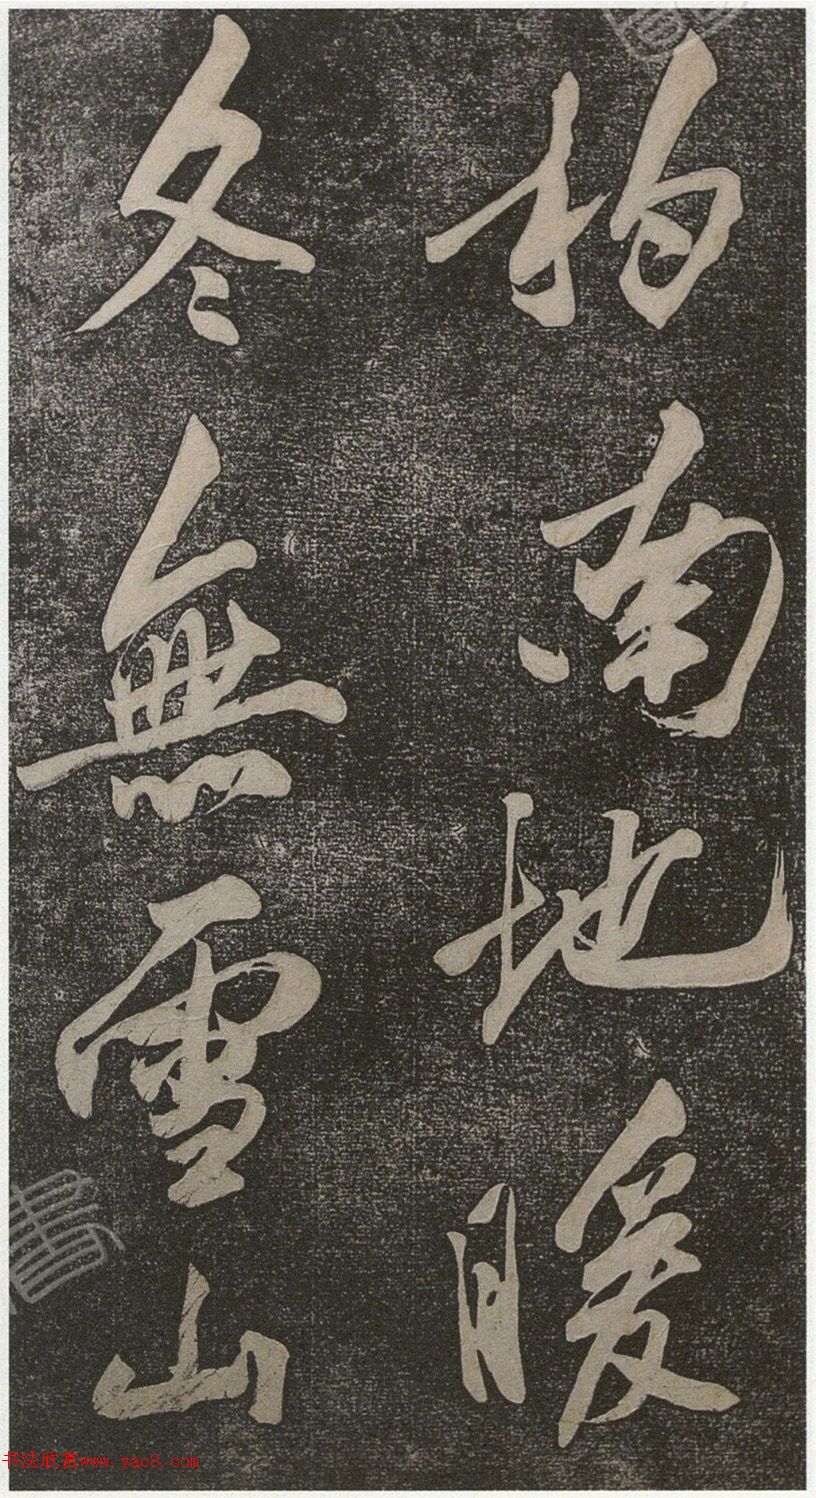 柏南地暖
冬無雪山
书法欣赏www.yac8.com